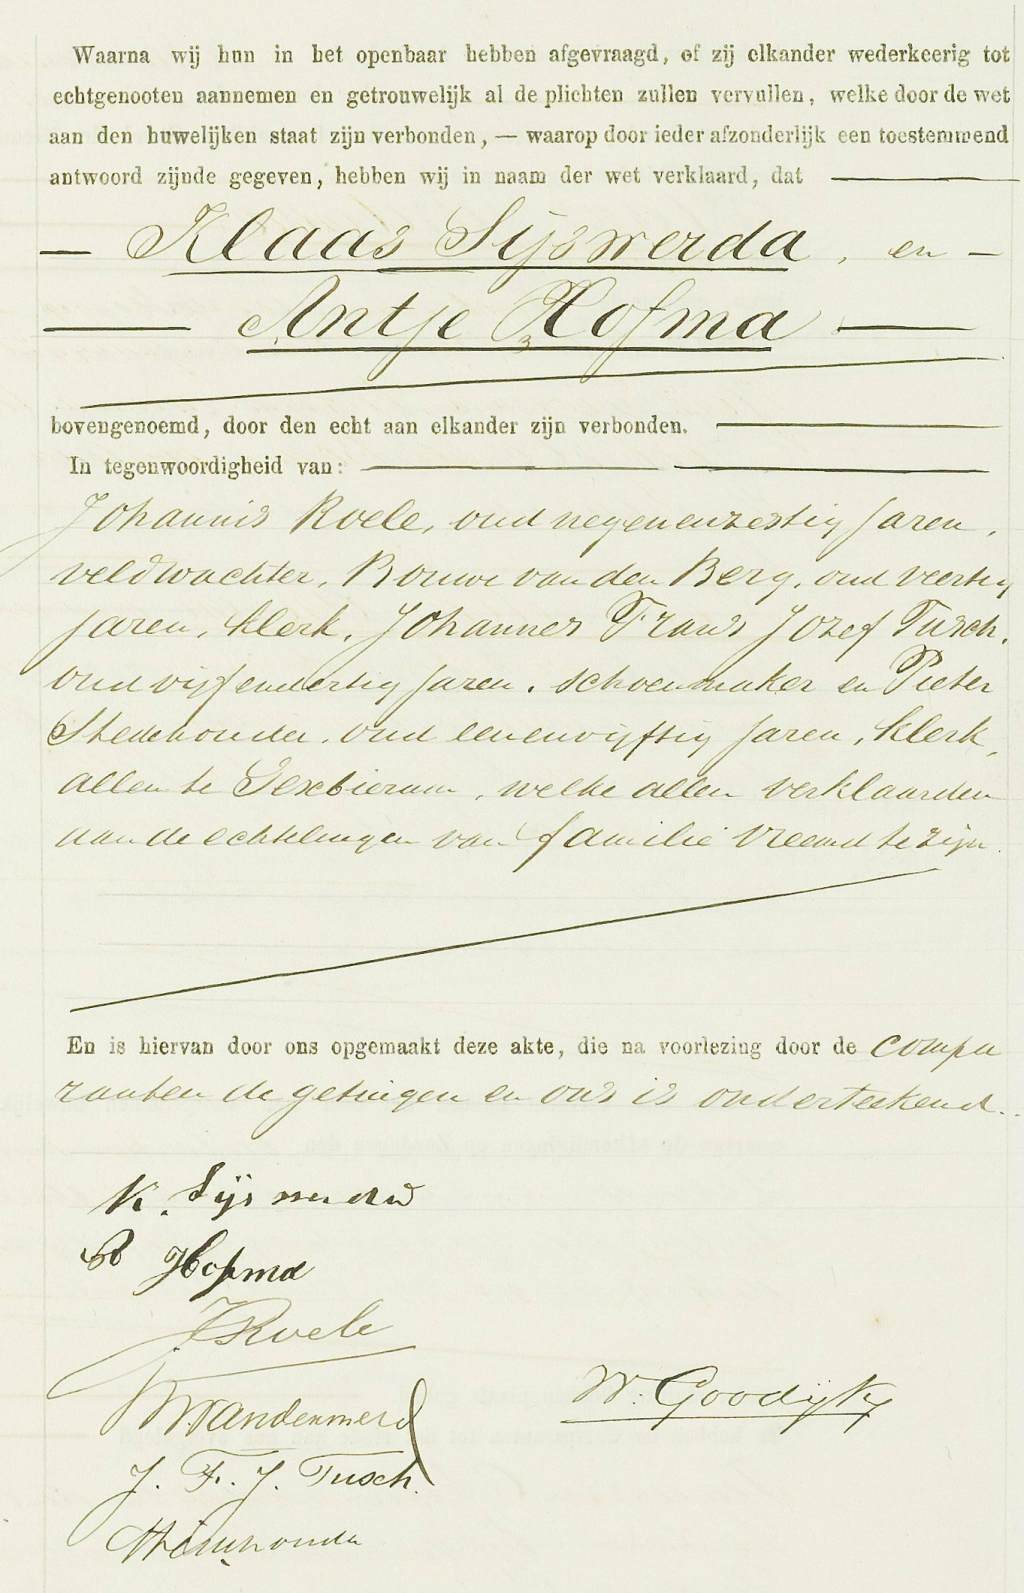 Waarna wij hun in het openbaar hebben afgevraagd, of zij elkander wederkeerig tot
echtgenooten aannemen en getrouwelijk al de plichten zullen vervullen, welke door de wet
aan den huwelijken staat zijn verbonden, — waarop door ieder afzonderlijk een toestemmend
antwoord zijnde gegeven, hebben wij in naam der wet verklaard, dat
— Klaas Sijswerda, en —
— Antje Hofma —
bovengenoemd, door den echt aan elkander zijn verbonden.
In tegenwoordigheid van:
Johannis Roele, oud negenenzestig jaren,
veldwachter, Bouwe van den Berg, oud veertig
jaren, klerk, Johannes Frans Jozef Tusch,
oud vijfenveertig jaren, schoenmaker en Pieter
Stedehouder, oud eenenvijftig jaren, klerk,
allen te Sexbierum, welke allen verklaarden
aan de echtelingen van familie vreemd te zijn.
En is hiervan door ons opgemaakt deze akte, die na voorlezing door de compa
ranten de getuigen en ons is onderteekend.
K. Sijswerda
A Hofma
J Roele
W. Goodijk
J. F. J. Tusch.